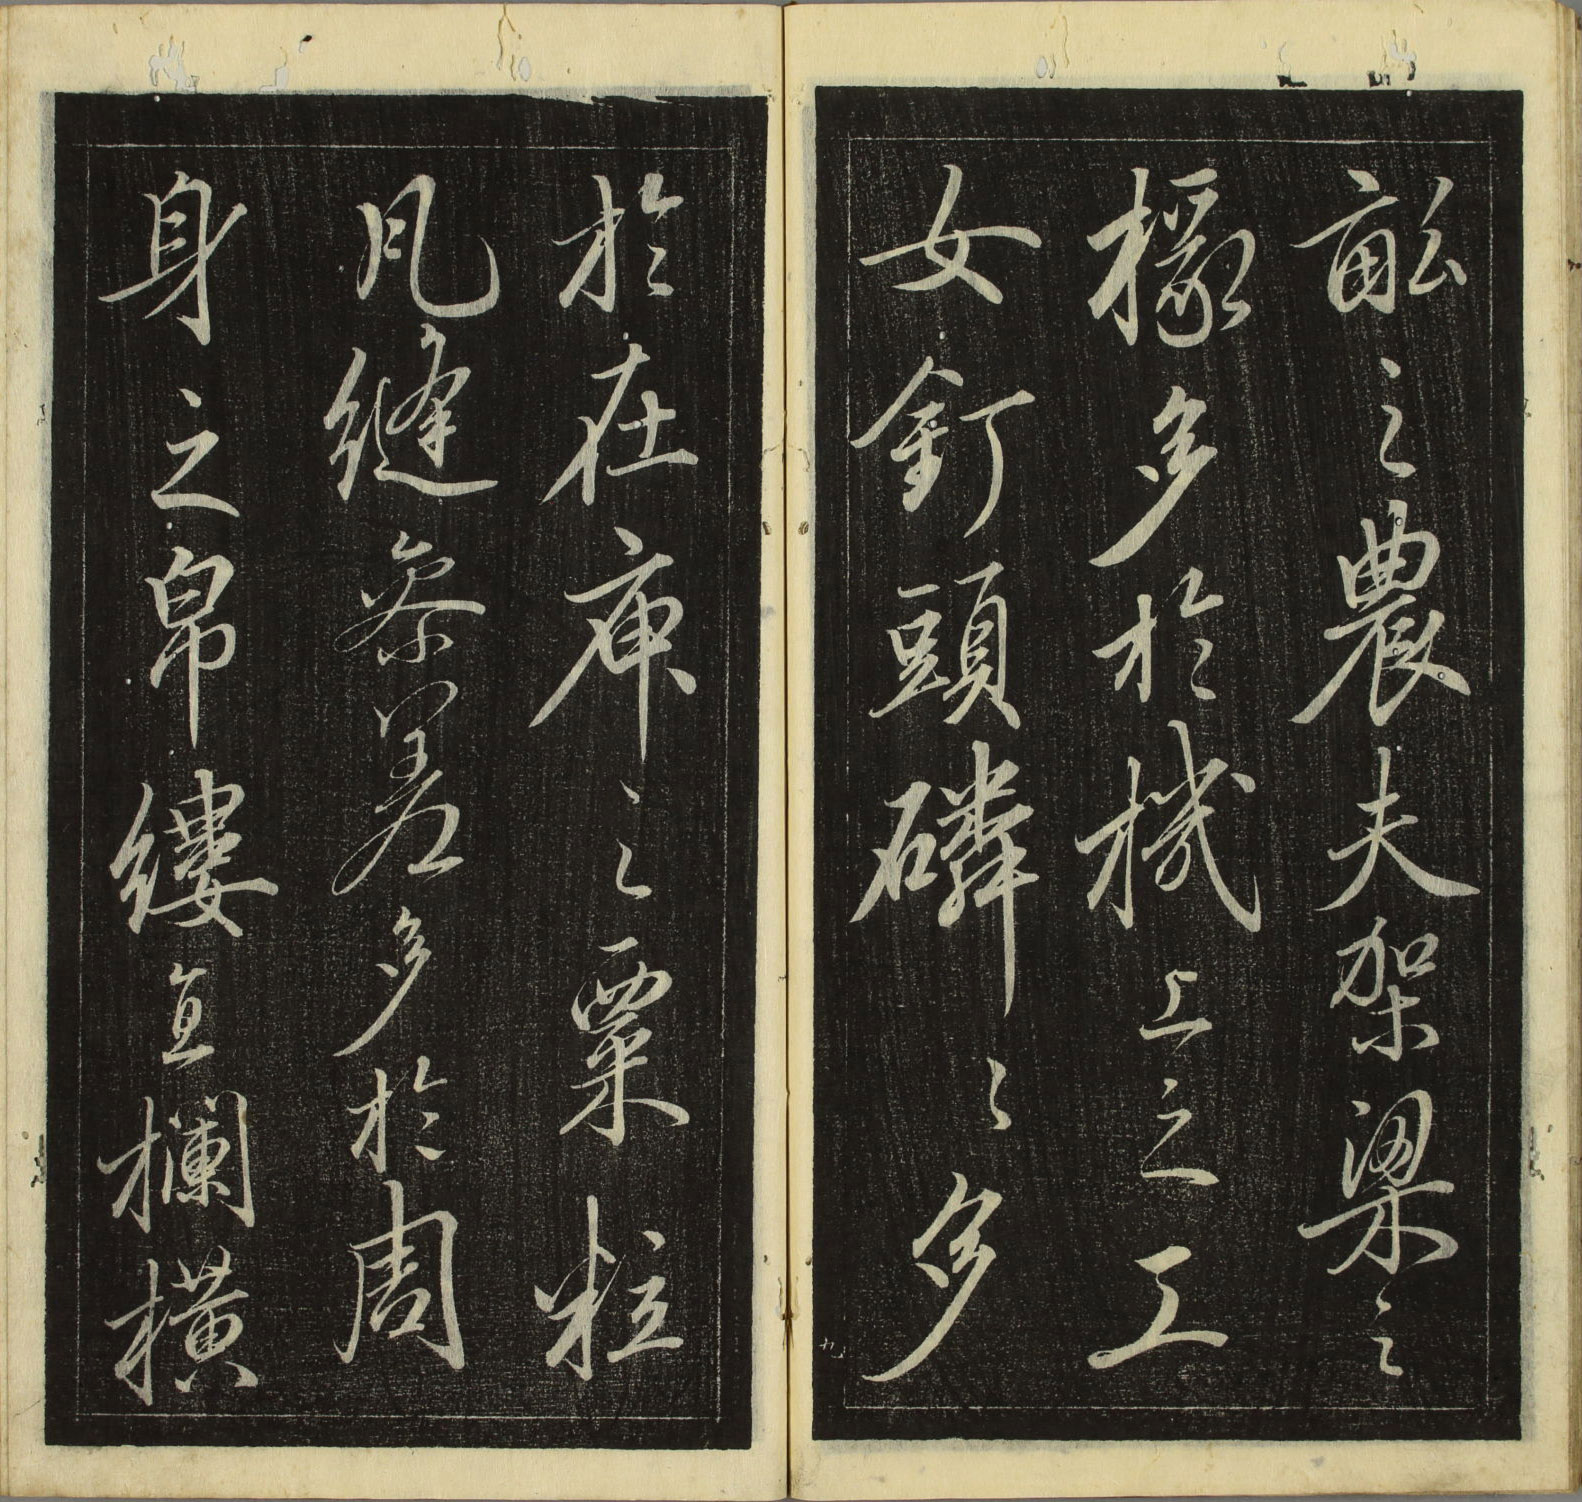 畝之農夫架梁之
椽多於機上之工
女釘頭磷〻多
於在庾之粟粒
瓦縫參差多於周
身之帛縷直欄橫